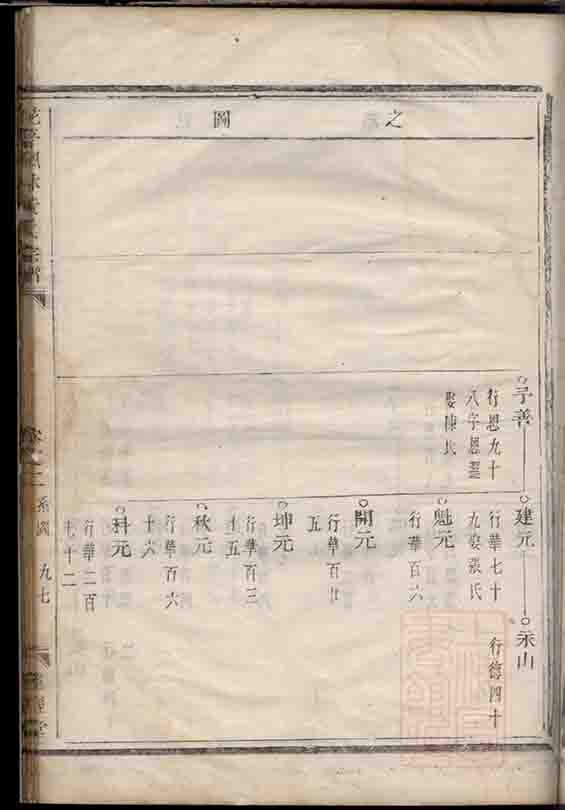 之圖
善
行恩九十
八字恩
娶陳氏
建元
行華七十
九娶張氏
魁元
行華百六
開元
行華百廿
五
坤元
行華百三
十五
秋元
行華百六
十六
科元
行華二百
七十二
永山
行德四十
系圖
九七
堂